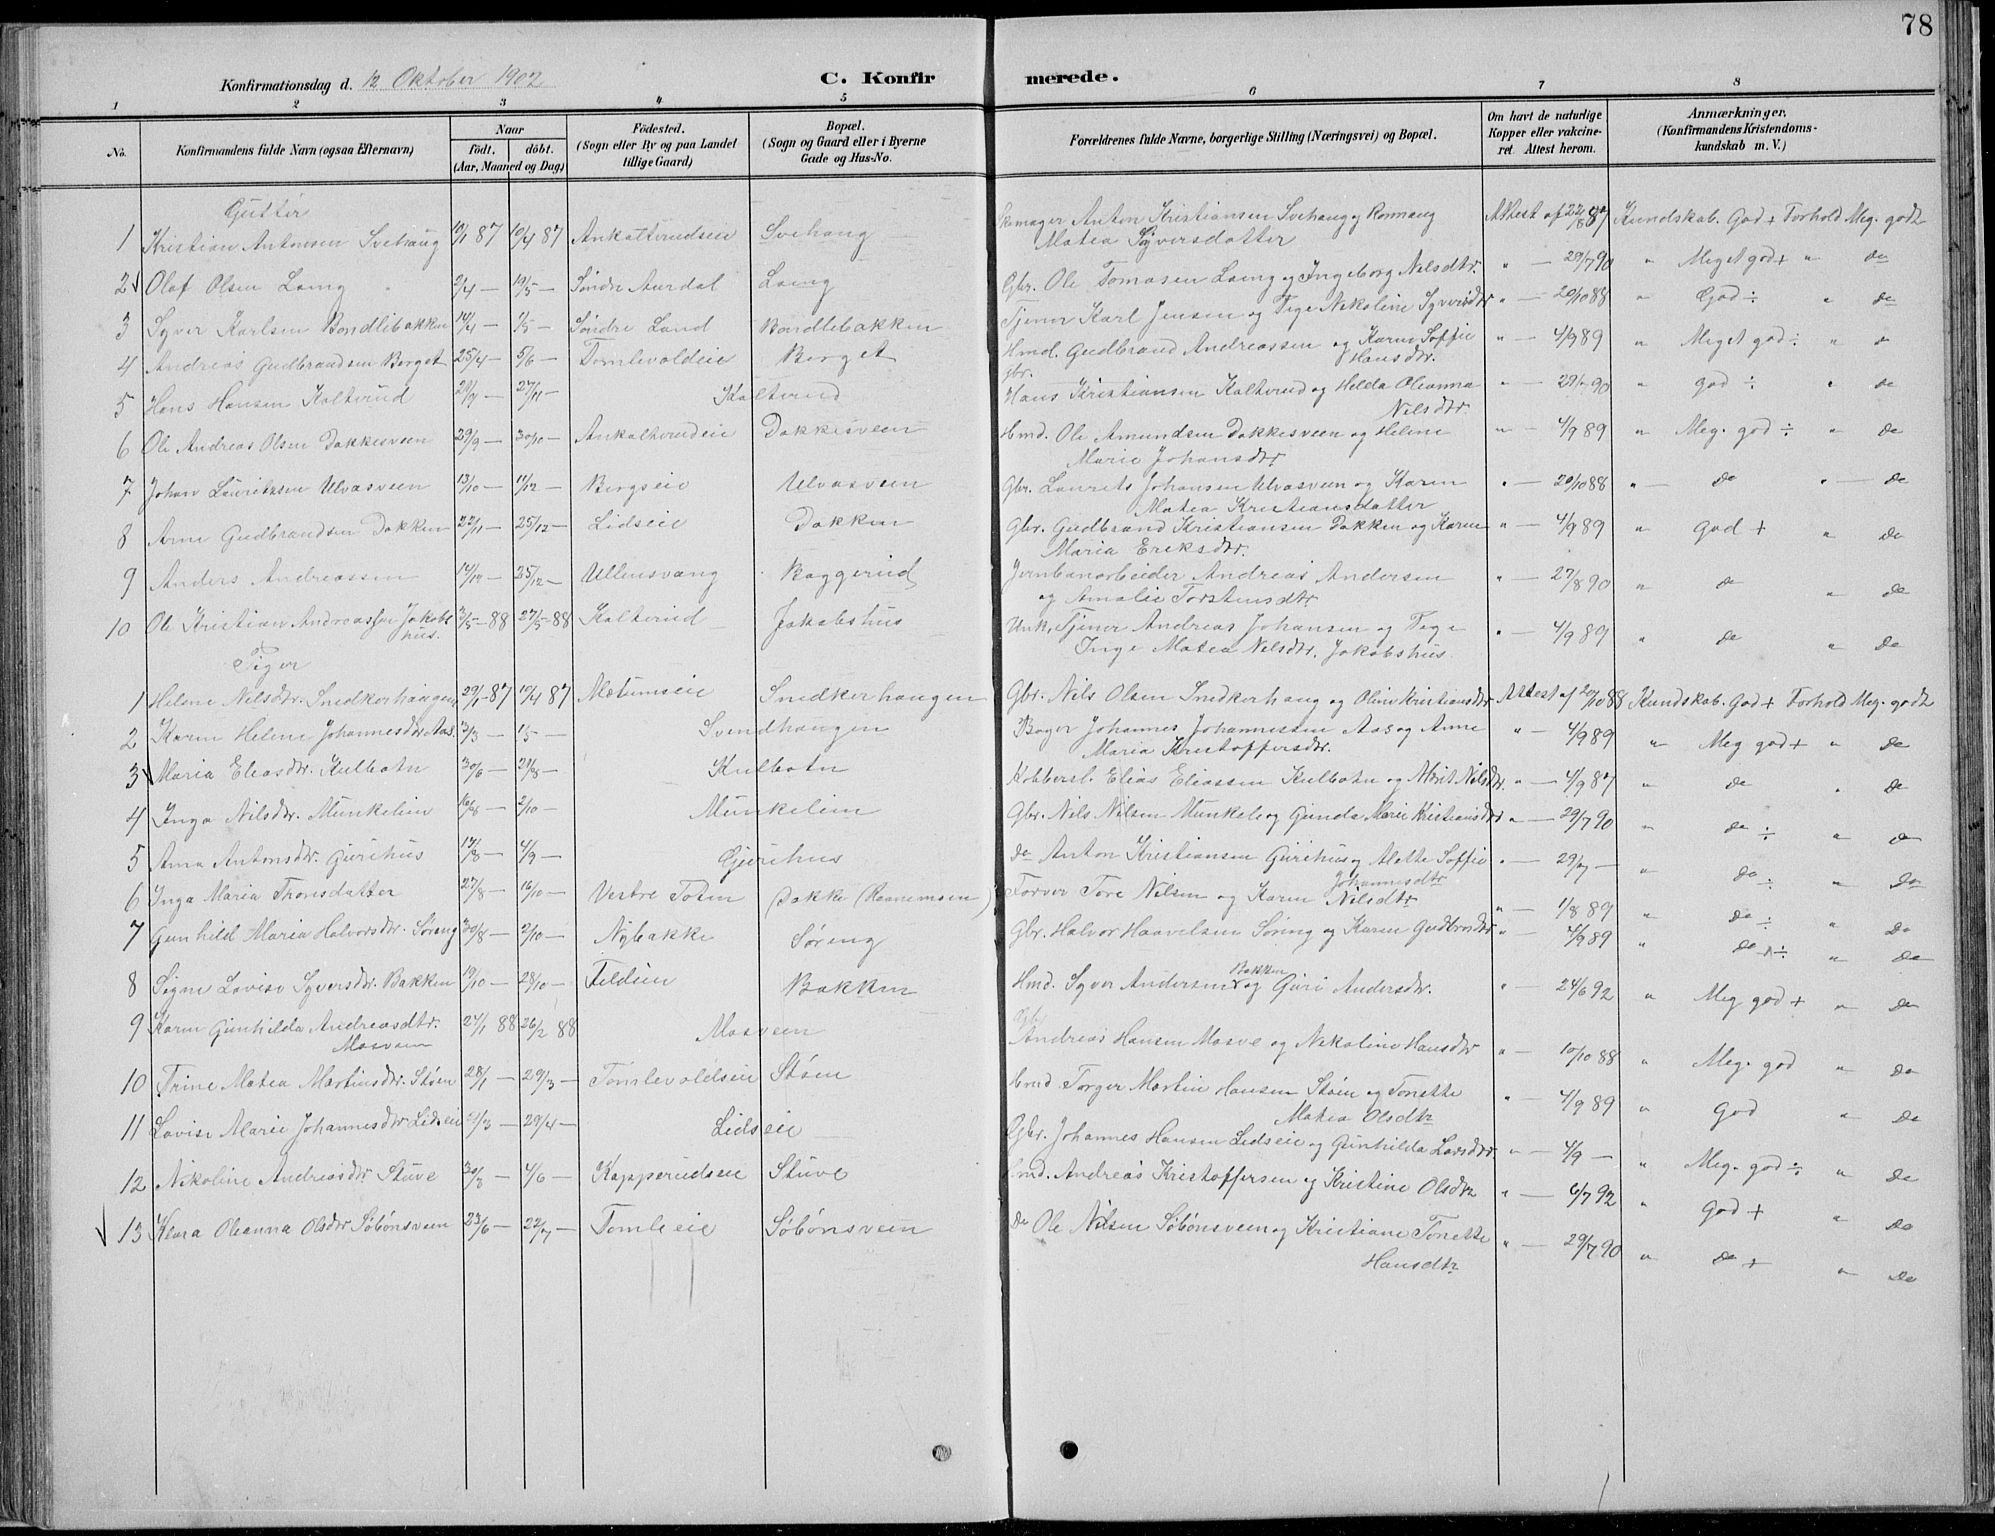 78
Konfirmationsdag d. 12 Oktober 1902
C. Konfirmerede.
1 2 3 4 5 6 7 8
No. Konfirmandens fulde Navn (ogsaa Efternavn) Naar Födt. döbt. (Aar, Maaned og Dag) Födested. (Sogn eller By og paa Landet tillige Gaard) Bopæl. (Sogn og Gaard eller i Byerne Gade og Hus-No. Forældrenes fulde Navne, borgerlige Stilling (Næringsvei) og Bopæl. Om havt de naturlige Kopper eller vakcineret. Attest herom. Anmærkninger. (Konfirmandens Kristendomskundskab m. V.)
Gutter
1 Kristian Antonsen Svehaug 10/1 87 10/4 87 Ankalterudseie Svehaug Skomager Anton Kristiansen Svehaug og Ronnaug Attest af 22/8 87 Kundskab. God + Forhold Meg. godt
Matea Syversdatter
2 Olaf Olsen Laing 2/4 — 19/5 — Søndre Aurdal Laing Gbr. Ole Tomasen Laing og Ingeborg Nilsdtr. " — 29/7 90 " Meget god + " do
3 Syver Karlsen Bondlibakken 14/4 — 1/5 — Søndre Land Bondlibakken Tjener Karl Jensen og Pige Nikoline Syversdtr " — 20/10 88 " God ÷ " do
4 Andreas Gudbrandsen Berget 25/4 — 5/6 — Tomlevoldeie Berget Hmd. Gudbrand Andreassen og Karen Soffie " — 4/9 89 " Meget god ÷ " d
Hansdtr.
5 Hans Hansen Kalterud 21/9 — 27/11 — Kalterud Gbr. Hans Kristiansen Kalterud og Helda Oleanna " — 29/7 90 " god ÷ " do
Nilsdtr
6 Ole Andreas Olsen Dokkesveen 29/9 — 30/10 — Ankalterudeie Dokkesveen Hmd. Ole Amundsen Dokkesveen og Helene " — 4/9 89 " Meg. god ÷ " do
Marie Johansdtr
7 Johan Lauritssen Ulvasveen 13/10 — 11/12 — Bergseie Ulvasveen Gbr. Laurits Johansen Ulvasveen og Karen " — 20/10 88 " — do " — do
Matea Kristiansdatter
8 Arne Gudbrandsen Dokken 22/11 — 25/12 — Lidseie Dokken Gbr. Gudbrand Kristiansen Dokken og Karen " — 4/9 89 " God + " do
Maria Eriksdtr.
9 Anders Andreassen 14/12 — 25/12 — Ullensvang Baggerud Jernbanarbeider Andreas Andersen " — 27/8 90 " do " do
og Amalie Torstensdtr
10 Ole Kristian Andreassen Jakobs 3/5 - 88 27/5 - 88 Kalterud Jakobshus Unk. Tjener Andreas Johansen og Pige " — 4/9 89 " do " do
hus. Inge Matea Nilsdtr. Jakobshus.
Piger
1 Helene Nilsdtr. Snedkerhaugen 29/1 - 87 10/4 87 Mætumseie Snedkerhaugen Gbr. Nils Olsen Snedkerhaug og Oline Kristiansdtr Attest af 20/10 88 Kundskab. God + Forhold Meg. godt
2 Karen Helene Johannesdtr Aas. 13/3 — 1/5 — Svendhaugen Bager Johannes Johannessen Aas og Anne " — 4/9 89 " Meg god + " do
Maria Kristoffersdtr.
3 Maria Eliasdtr. Kulbotn 30/6 — 21/8 — Kulbotn Kobbersl. Elias Eliassen Kulbotn og Marit Nilsdtr. " — 4/9 87 " do " do
4 Inga Nilsdtr. Munkelien 16/8 — 2/10 — Munkelien Gbr. Nils Nilsen Munkeli og Gunda Marie Kristiansdtr " — 29/7 90 " do ÷ " do
5 Ama Antonsdtr. Gurihus 19/8 — 4/9 — Gjurihus do Anton Kristiansen Gurihus og Alette Soffie " — 29/7 — " do ÷ " do
Johannesdtr
6 Inga Maria Thorsdatter 27/8 — 16/10 — Vestre Toten Dokke Farver Tore Nilsen og Karen Nilsdtr " — 1/8 89 " do ÷ " do
7 Gunhild Maria Halvorsdtr. Søreng 30/8 — 2/10 — Nybakke Søreng Gbr. Halvor Haavelsen Søreng og Karen Gudbrdtr " — 4/9 89 " do ÷ " do
8 Signe Lovise Syversdtr. Bakken 19/10 — 28/10 — Feldseie Bakken Hmd. Syver Andersen Bakken og Guri Andersdtr. " — 24/6 92 " Meg god + " do
9 Karen Gunhilda Andreasdtr. 27/1 88 26/2 88 Mosveen Gbr Andreas Hansen Mosve og Nikoline Hansdtr " — 10/10 88 " Meg. god " do
Mosveen
10 Trine Matea Martinsdtr. Støen 28/1 — 29/3 — Tomlevoldseie Støen Hmd Torger Martin Hansen Støen og Tonette " — 4/9 89 " God " do
Matea Olsdtr
11 Lovise Marie Johannesdtr Lidseie 21/3 — 29/4 — Lidseie Gbr. Johannes Hansen Lidseie og Gunhilda Larsdtr " — 4/9 — " Meg. god ÷ " do
12 Nikoline Andreasdtr Stuve 30/3 — 4/6 — Kopperudseie Stuve Hmd. Andreas Kristoffersen og Kristine Olsdtr " — 6/7 92 " God + " do
13 Klara Oleanna Olsdtr Søbønsveen 23/6 — 22/7 — Tomleeie Søbønsveen do Ole Nilsen Søbønsveen og Kristiane Tonette " — 29/7 90 " do + " do
Hansdtr